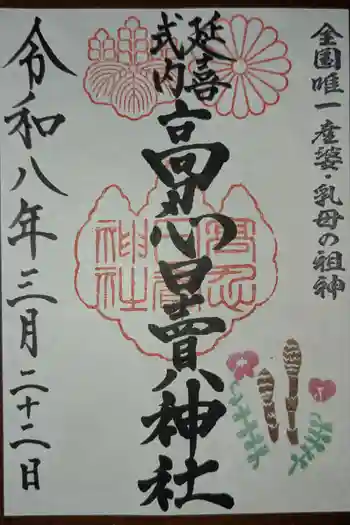 全国唯一産婆・乳母の祖神
延喜
式内
高忍日賣神社
高忍
日賣
神社
令和八年三月二十二日